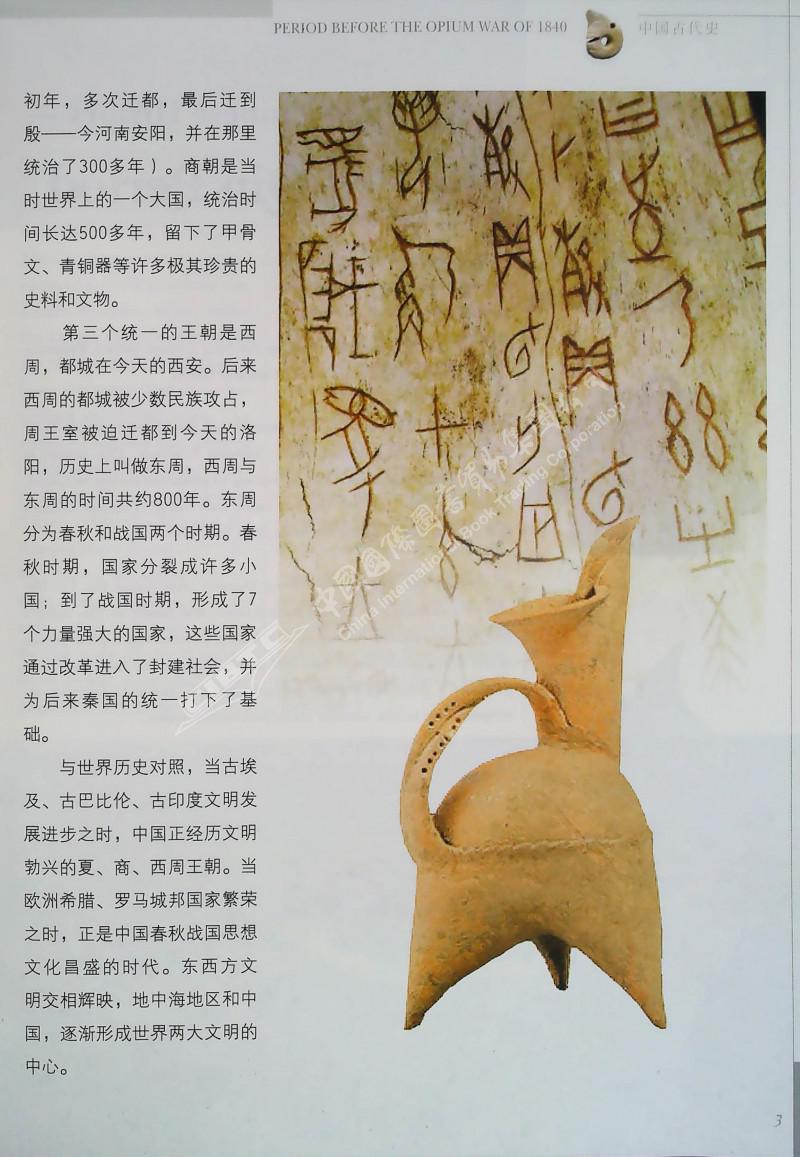 PERIOD BEFORE THE OPIUM WAR OF 1840
中国古代史
初年，多次迁都，最后迁到
殷——今河南安阳，并在那里
统治了300多年）。商朝是当
时世界上的一个大国，统治时
间长达500多年，留下了甲骨
文、青铜器等许多极其珍贵的
史料和文物。
第三个统一的王朝是西
周，都城在今天的西安。后来
西周的都城被少数民族攻占，
周王室被迫迁都到今天的洛
阳，历史上叫做东周，西周与
东周的时间共约800年。东周
分为春秋和战国两个时期。春
秋时期，国家分裂成许多小
国；到了战国时期，形成了7
个力量强大的国家，这些国家
通过改革进入了封建社会，并
为后来秦国的统一打下了基
础。
与世界历史对照，当古埃
及、古巴比伦、古印度文明发
展进步之时，中国正经历文明
勃兴的夏、商、西周王朝。当
欧洲希腊、罗马城邦国家繁荣
之时，正是中国春秋战国思想
文化昌盛的时代。东西方文
明交相辉映，地中海地区和中
国，逐渐形成世界两大文明的
中心。
中国国际图书贸易集团公司
China International Book Trading Corporation
3